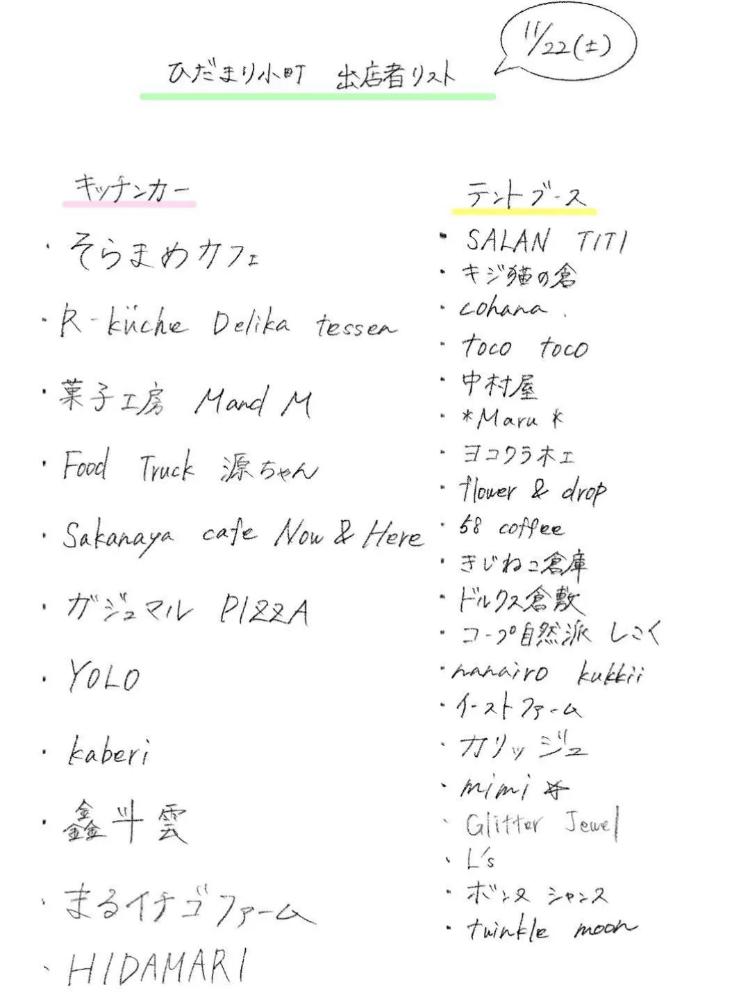 11/22(土)
ひだまり小町 出店者リスト
キッチンカー
・そらまめカフェ
・R-küche Delika tessen
・菓子工房 Mand M
・Food Truck 源ちゃん
・Sakanaya cafe Now & Here
・ガジュマル PIZZA
・YOLO
・kaberi
・鑫斗雲
・まるイチゴファーム
・HIDAMARI
テントブース
・SALAN TITI
・キジ猫の倉
・cohana.
・toco toco
・中村屋
・*Maru*
・ヨコクラ木工
・flower & drop
・58 coffee
・きじねこ倉庫
・ドルクス倉敷
・コープ自然派 しこく
・nanairo kukkii
・イーストファーム
・カリッジュ
・mimi✲
・Glitter Jewel
・L's
・ボンヌ シャンス
・twinkle moon